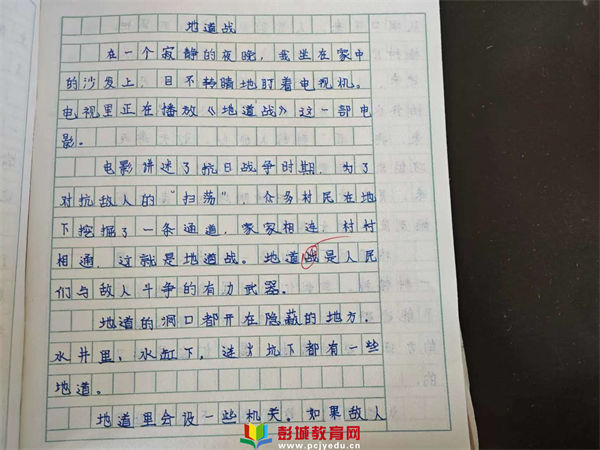 地道战
在一个寂静的夜晚,我坐在家中
的沙发上,目不转睛地盯着电视机。
电视里正在播放《地道战》这一部电
影。
电影讲述了抗日战争时期,为了
对抗敌人的“扫荡”,众多村民在地
下挖掘了一条通道,家家相连,村村
相通,这就是地道战。地道战是人民
们与敌人斗争的有力武器。
地道的洞口都开在隐蔽的地方:
水井里,水缸下,连坑下都有一些
地道。
地道里会设一些机关。如果敌人
彭城教育网
www.pcjyedu.cn